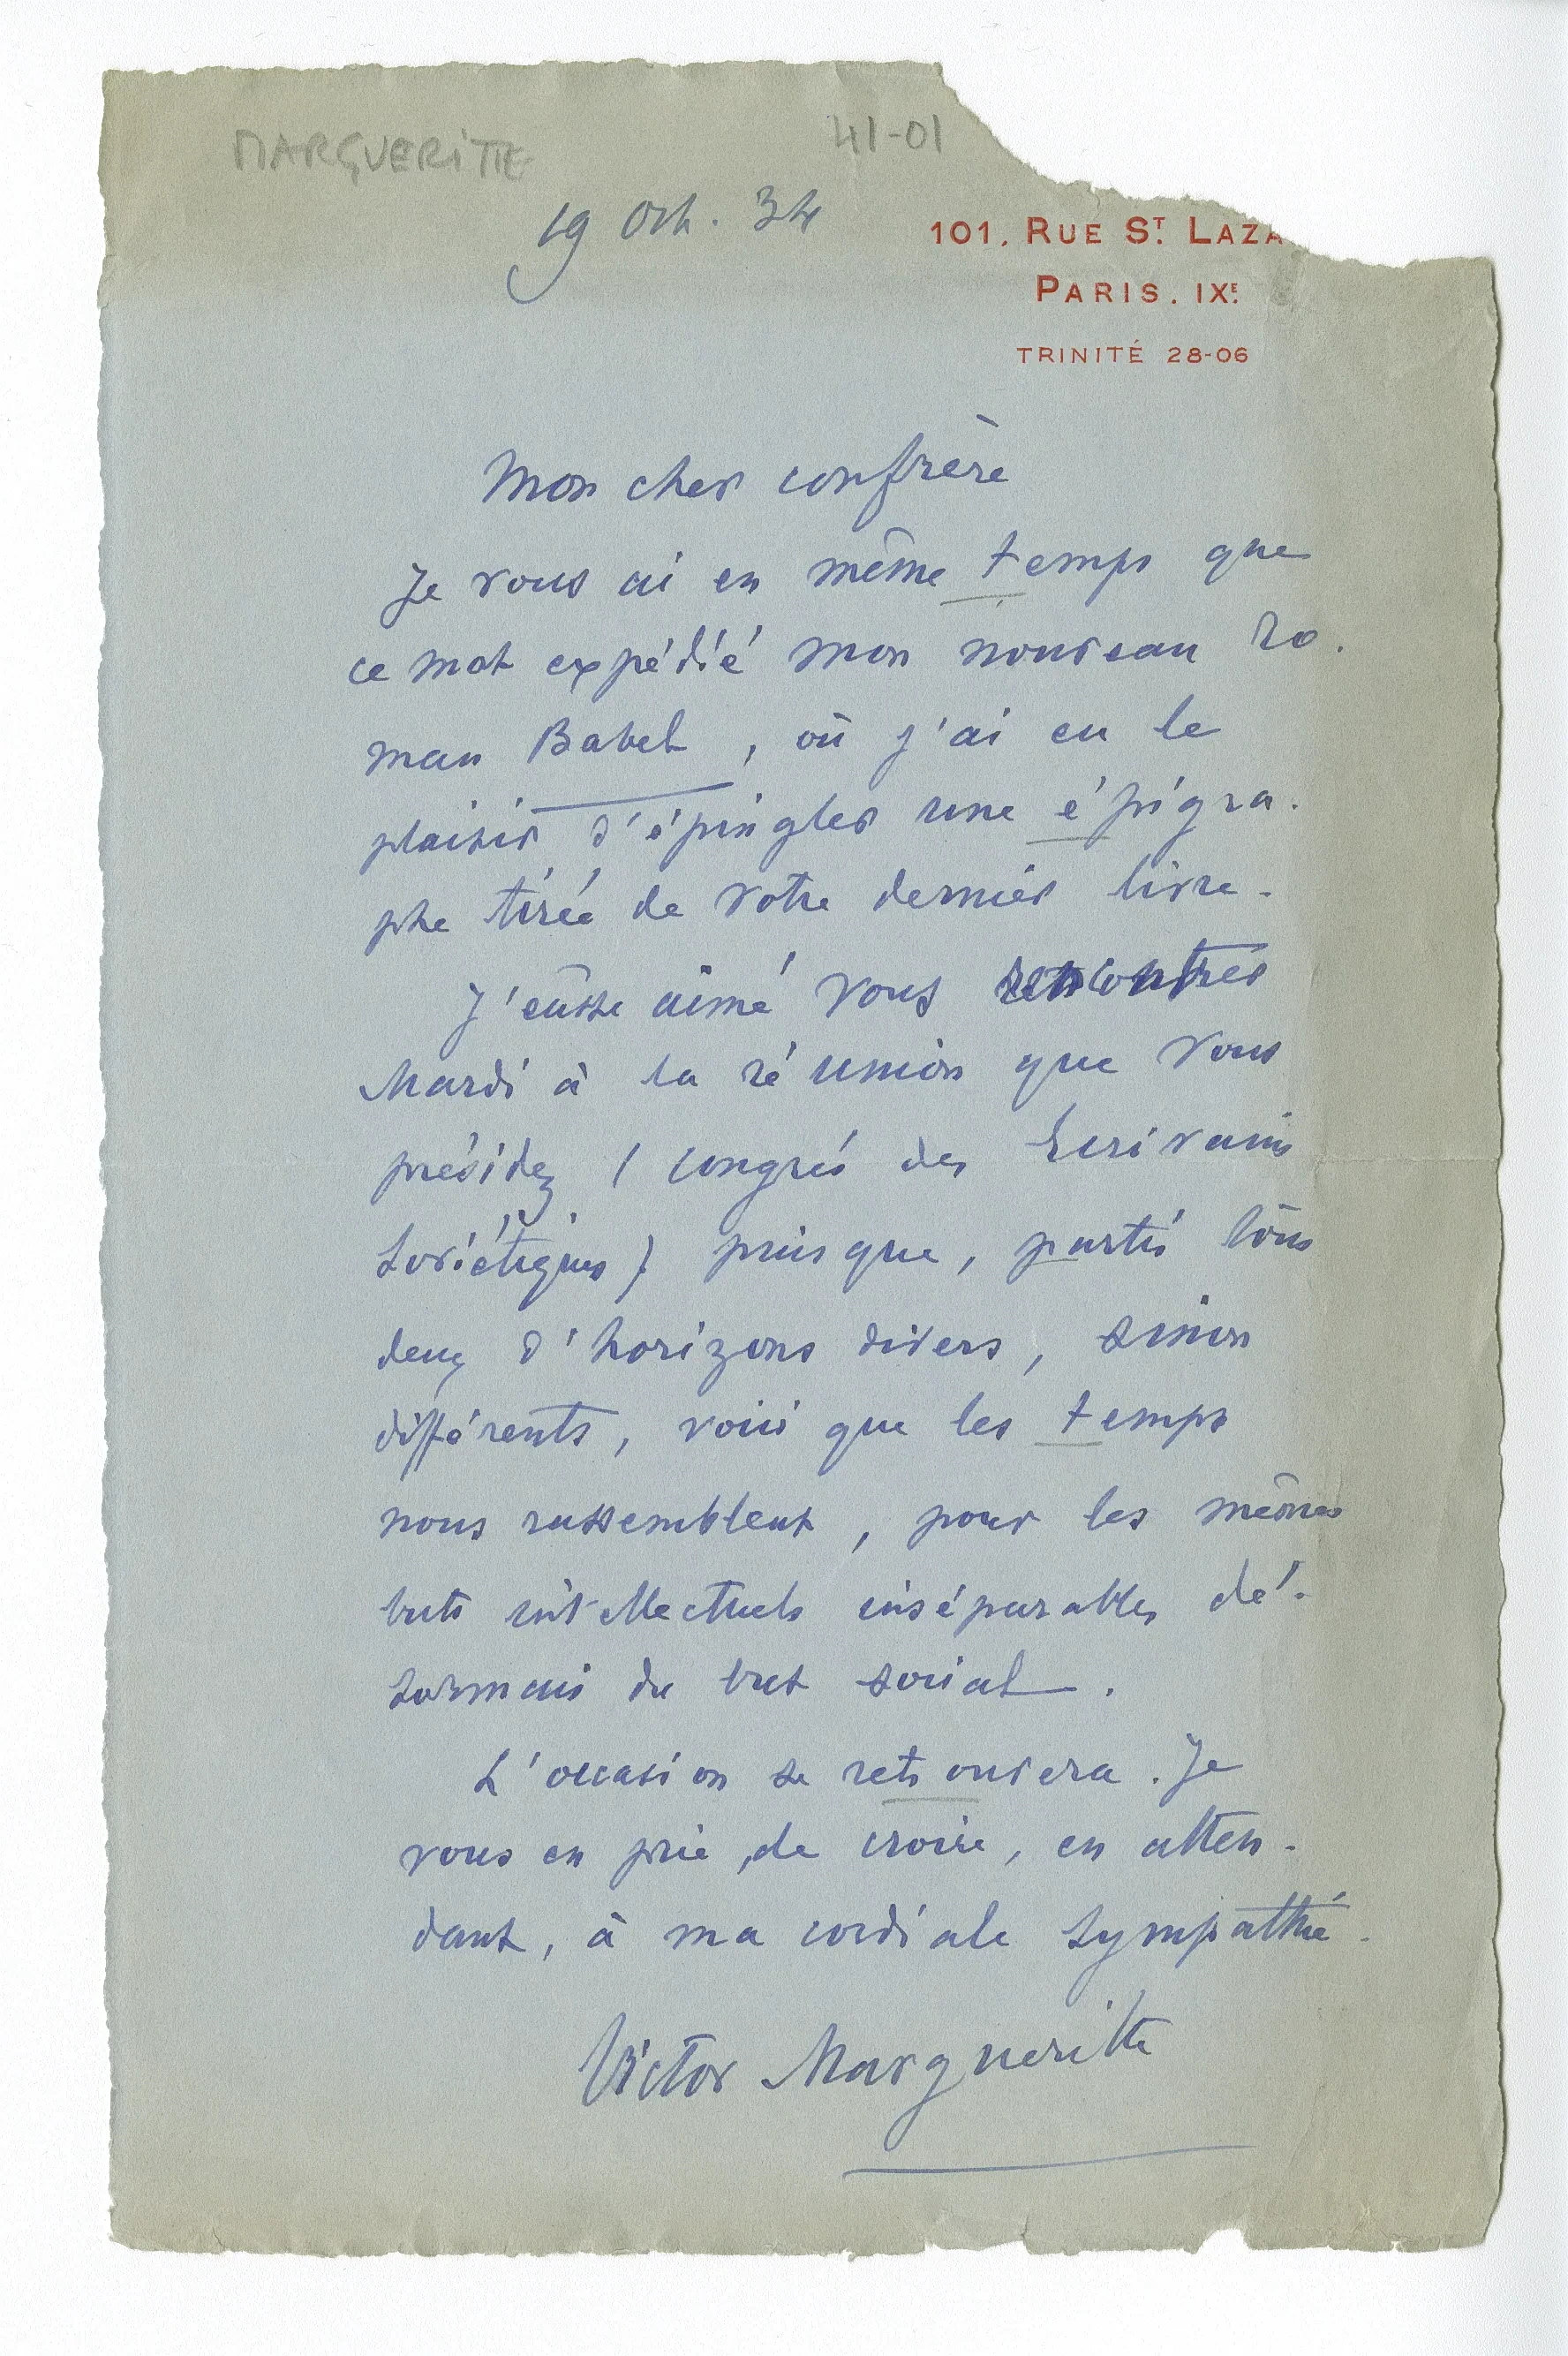 MARGUERITTE
41-01
19 Oct. 34
101, RUE ST. LAZA
PARIS. IXE.
TRINITÉ 28-06
Mon cher confrère
Je vous ai en même temps que
ce mot expédié mon nouveau ro-
man Babel, où j'ai eu le
plaisir d'épingler une épigra-
phe tirée de votre dernier livre.
J'eusse aimé vous rencontrer
Mardi à la réunion que vous
présidez (congrès des Ecrivains
Soviétiques) puisque, partis tous
deux d'horizons divers, sinon
différents, voici que les temps
nous rassemblent, pour les mêmes
buts intellectuels inséparables dé-
sormais du but social.
L'occasion se retrouvera. Je
vous en prie, de croire, en atten-
dant, à ma cordiale sympathie.
Victor Margueritte